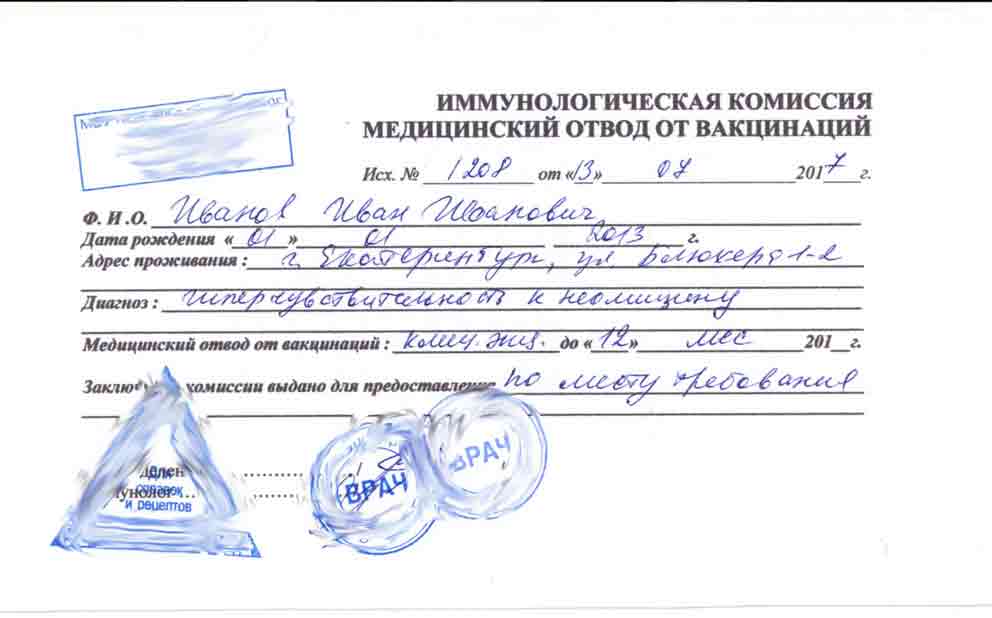 ИММУНОЛОГИЧЕСКАЯ КОМИССИЯ
МЕДИЦИНСКИЙ ОТВОД ОТ ВАКЦИНАЦИЙ
Исх. № 1208 от «13» 07 2017 г.
Ф. И .О. Иванов Иван Иванович
Дата рождения «01» 01 2013 г.
Адрес проживания : г. Екатеринбург, ул. Блюхера 1-2
Диагноз : гиперчувствительность к неомицину
Медицинский отвод от вакцинаций : до «12» мес 201 г.
комиссии выдано для предоставления по месту требования
Для
справок
и рецептов
ВРАЧ
ВРАЧ